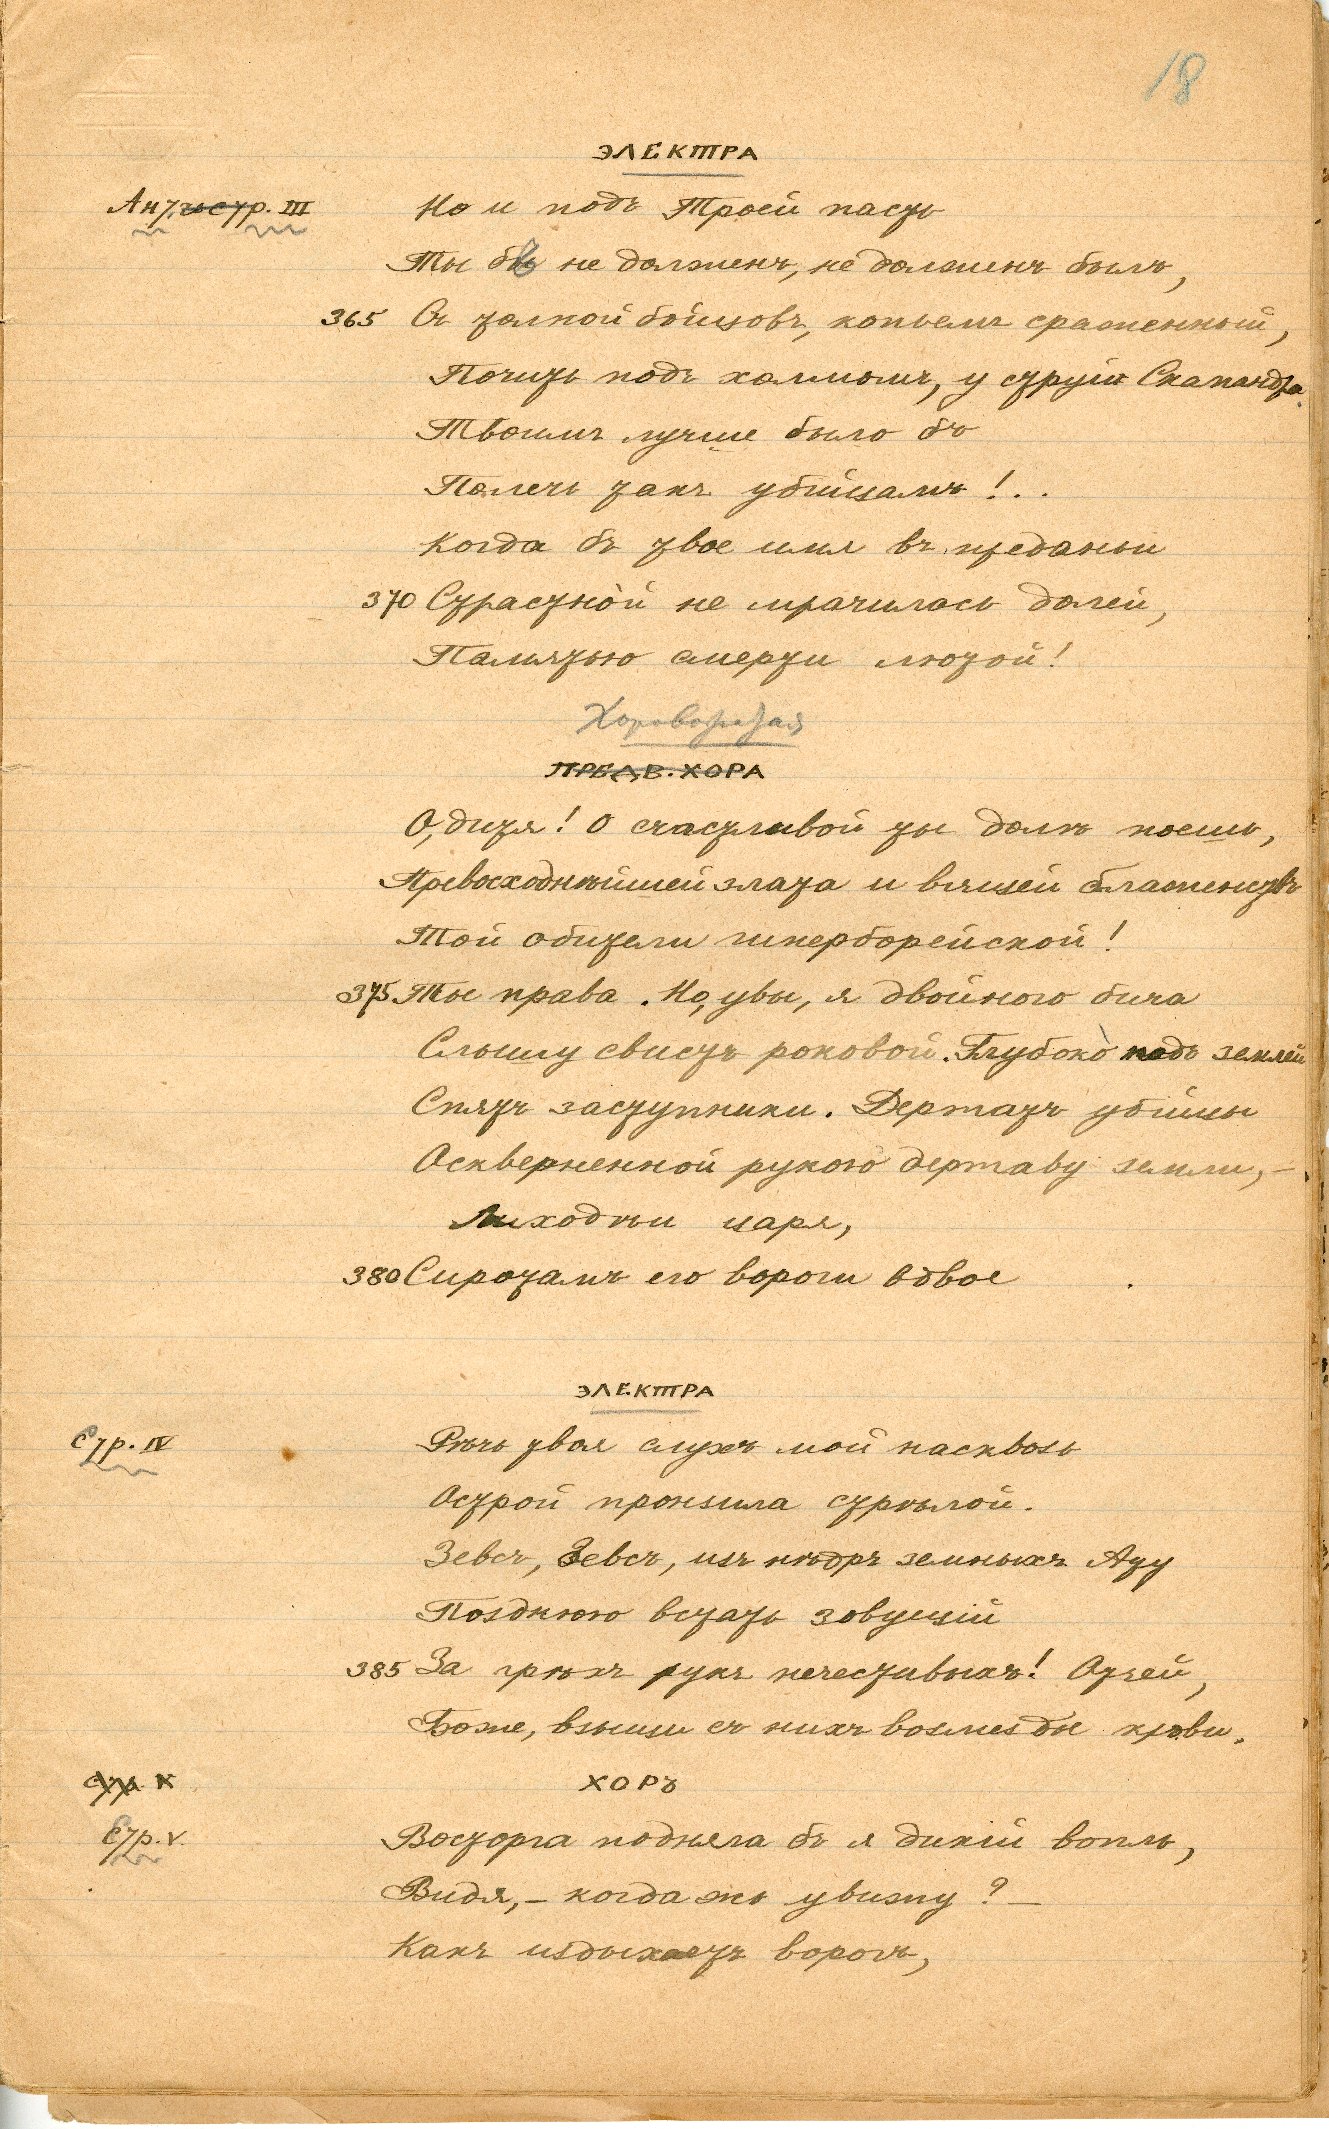 18
ЭЛЕКТРА
Антистр. III Но и подъ Троей пасть
Ты бъ не долженъ, не долженъ былъ,
365 Съ толпой бойцовъ, копьемъ сраженный,
Почить подъ холмомъ, у струй Скамандра.
Твоимъ лучше было бъ
Полечь такъ убійцамъ!..
Когда бъ твое имя въ преданьи
370 Страстной не мрачилось долей,
Памятью смерти лютой!
Хороводная
ПРЕДВ. ХОРА
О, дитя! О счастливой ты долѣ поешь,
Превосходнѣйшей злата и вящей блаженствъ
Той обители гиперборейской!
375 Ты права. Но, увы, я двойного бича
Слышу свистъ роковой. Глубоко подъ землей
Спятъ заступники. Держатъ убійцы
Оскверненной рукою державу земли,—
Лиходѣи царя,
380 Сиротамъ его вороги вдвое
ЭЛЕКТРА
Стр. IV Рѣчь твоя слухъ мой насквозь
Острой пронзила стрѣлой.
Зевсъ, Зевсъ, изъ нѣдръ земныхъ Ату
Позднюю встать зовущій
385 За грѣхъ рукъ нечестивыхъ! Отчей,
Боже, взыщи съ нихъ возмездье крови.
ХОРЪ
Стр. V Восторга подняла бъ я дикій вопль,
Видя,— когда жъ увижу?—
Какъ издыхаетъ ворогъ,